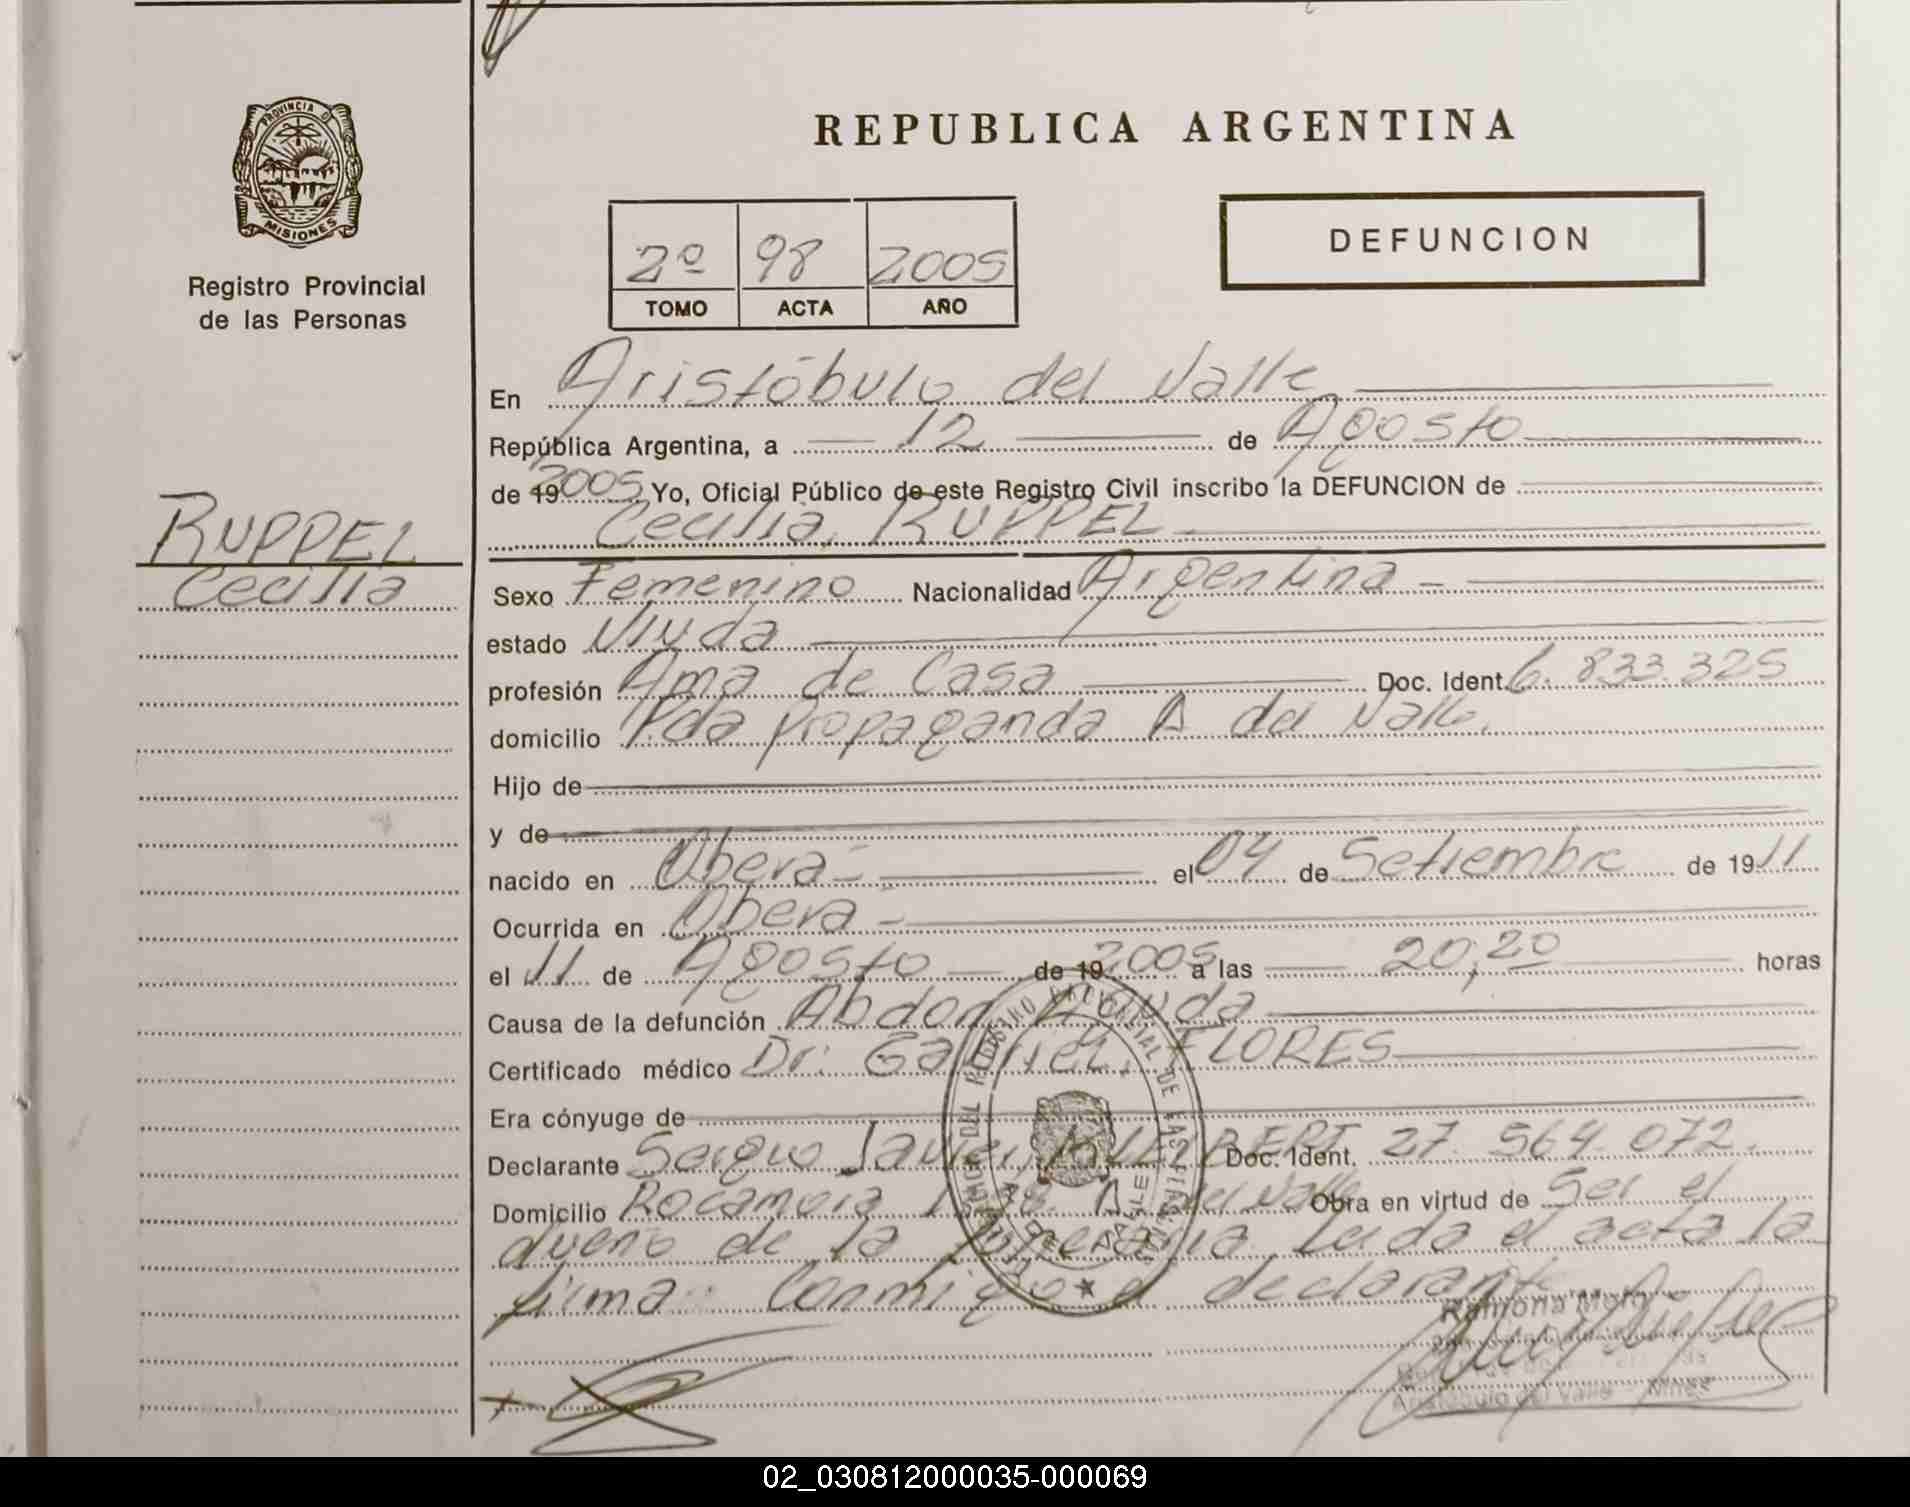 PROVINCIA DE
MISIONES
Registro Provincial
de las Personas
RUPPEL
Cecilia
REPUBLICA ARGENTINA
DEFUNCION
2º 98 2005
TOMO ACTA AÑO
En Aristóbulo del Valle
República Argentina, a 12 de Agosto
de 19 2005 Yo, Oficial Público de este Registro Civil inscribo la DEFUNCION de
Cecilia, RUPPEL
Sexo Femenino Nacionalidad Argentina
estado Viuda
profesión Ama de Casa Doc. Ident. 6.833.325
domicilio Pda Propaganda A del Valle
Hijo de
y de
nacido en Obera el 04 de Setiembre de 1911
Ocurrida en Obera
el 11 de Agosto de 19 2005 a las 20,20 horas
Causa de la defunción Abdon Aguda
Certificado médico Dr: Gabriel, FLORES
Era cónyuge de
Declarante Sergio Javier Doc. Ident. 27.564.072.
Domicilio Rocamora A del Valle Obra en virtud de Ser el
dueño de la Funeraria Leida el acta la
firma Conmigo el declarante
Ramona
Aristóbulo del Valle - Mnes
REGISTRO PROVINCIAL DE LAS
02_030812000035-000069